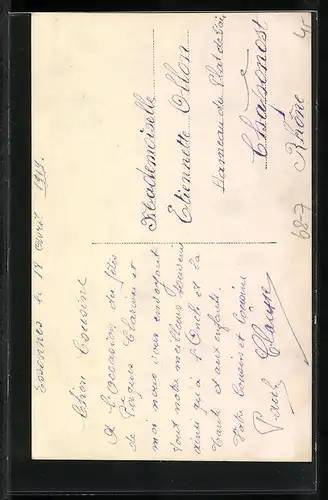 le 18 avril 1919.
Chère Cousine
A l'occasion des fêtes
de Pâques Clarisse et
moi nous vous envoyons
tout notre meilleur souvenir
ainsi qu'à l'Oncle et la
tante et aux enfants.
Votre cousin et cousine
Paul Clarisse
Mademoiselle
Etiennette Ollon
Hameau du Plat de
Chaponost
Rhône
687